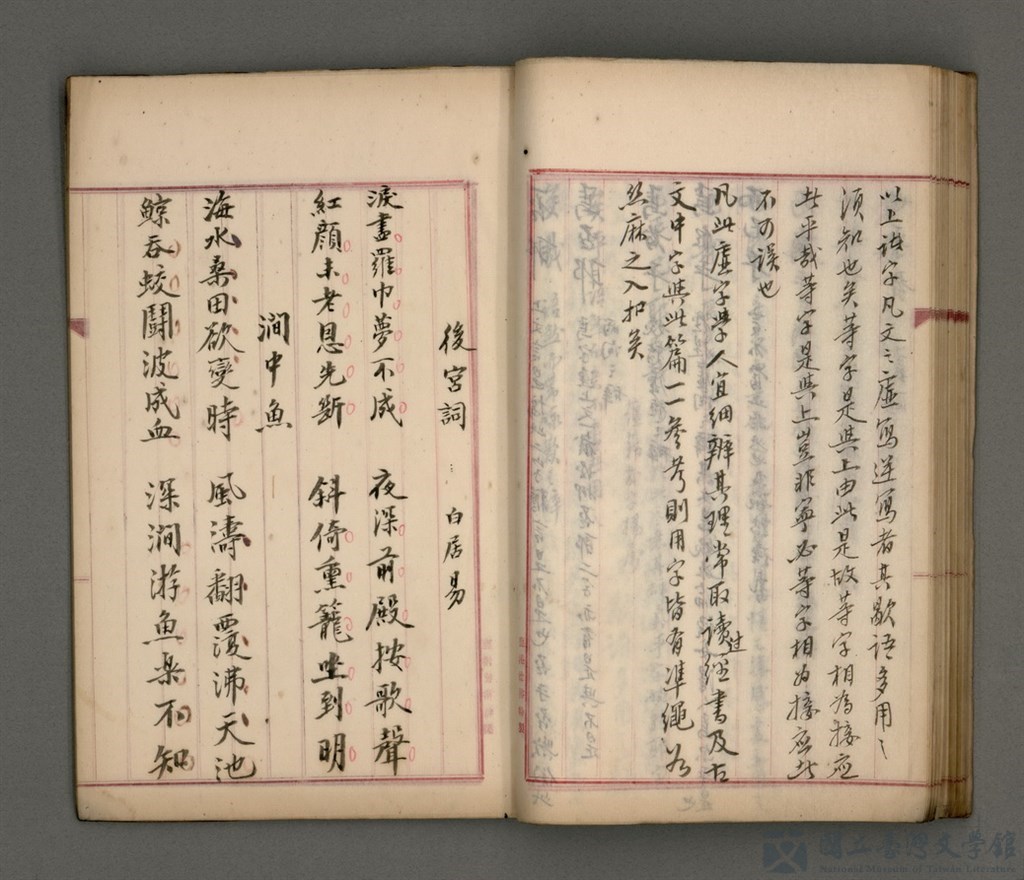 以上諸字凡文之虛寫逆寫者其歇語多用之
須知也矣等字是與上由此是故等字相為接应
共乎哉等字是與上豈非寧必等字相为接应此
不可误也
凡此虛字學人宜細辨其理常取读过經書及古
文中字與此篇一一參考則用字皆有準繩若
丝麻之入扣矣
後宮詞 白居易
淚盡羅巾夢不成 夜深前殿按歌聲
紅顏未老恩先斷 斜倚熏籠坐到明
澗中魚
海水桑田欲變時 風濤翻覆沸天池
鯨吞蛟鬪波成血 深澗游魚樂不知
國立臺灣文學館
National Museum of Taiwan Literature